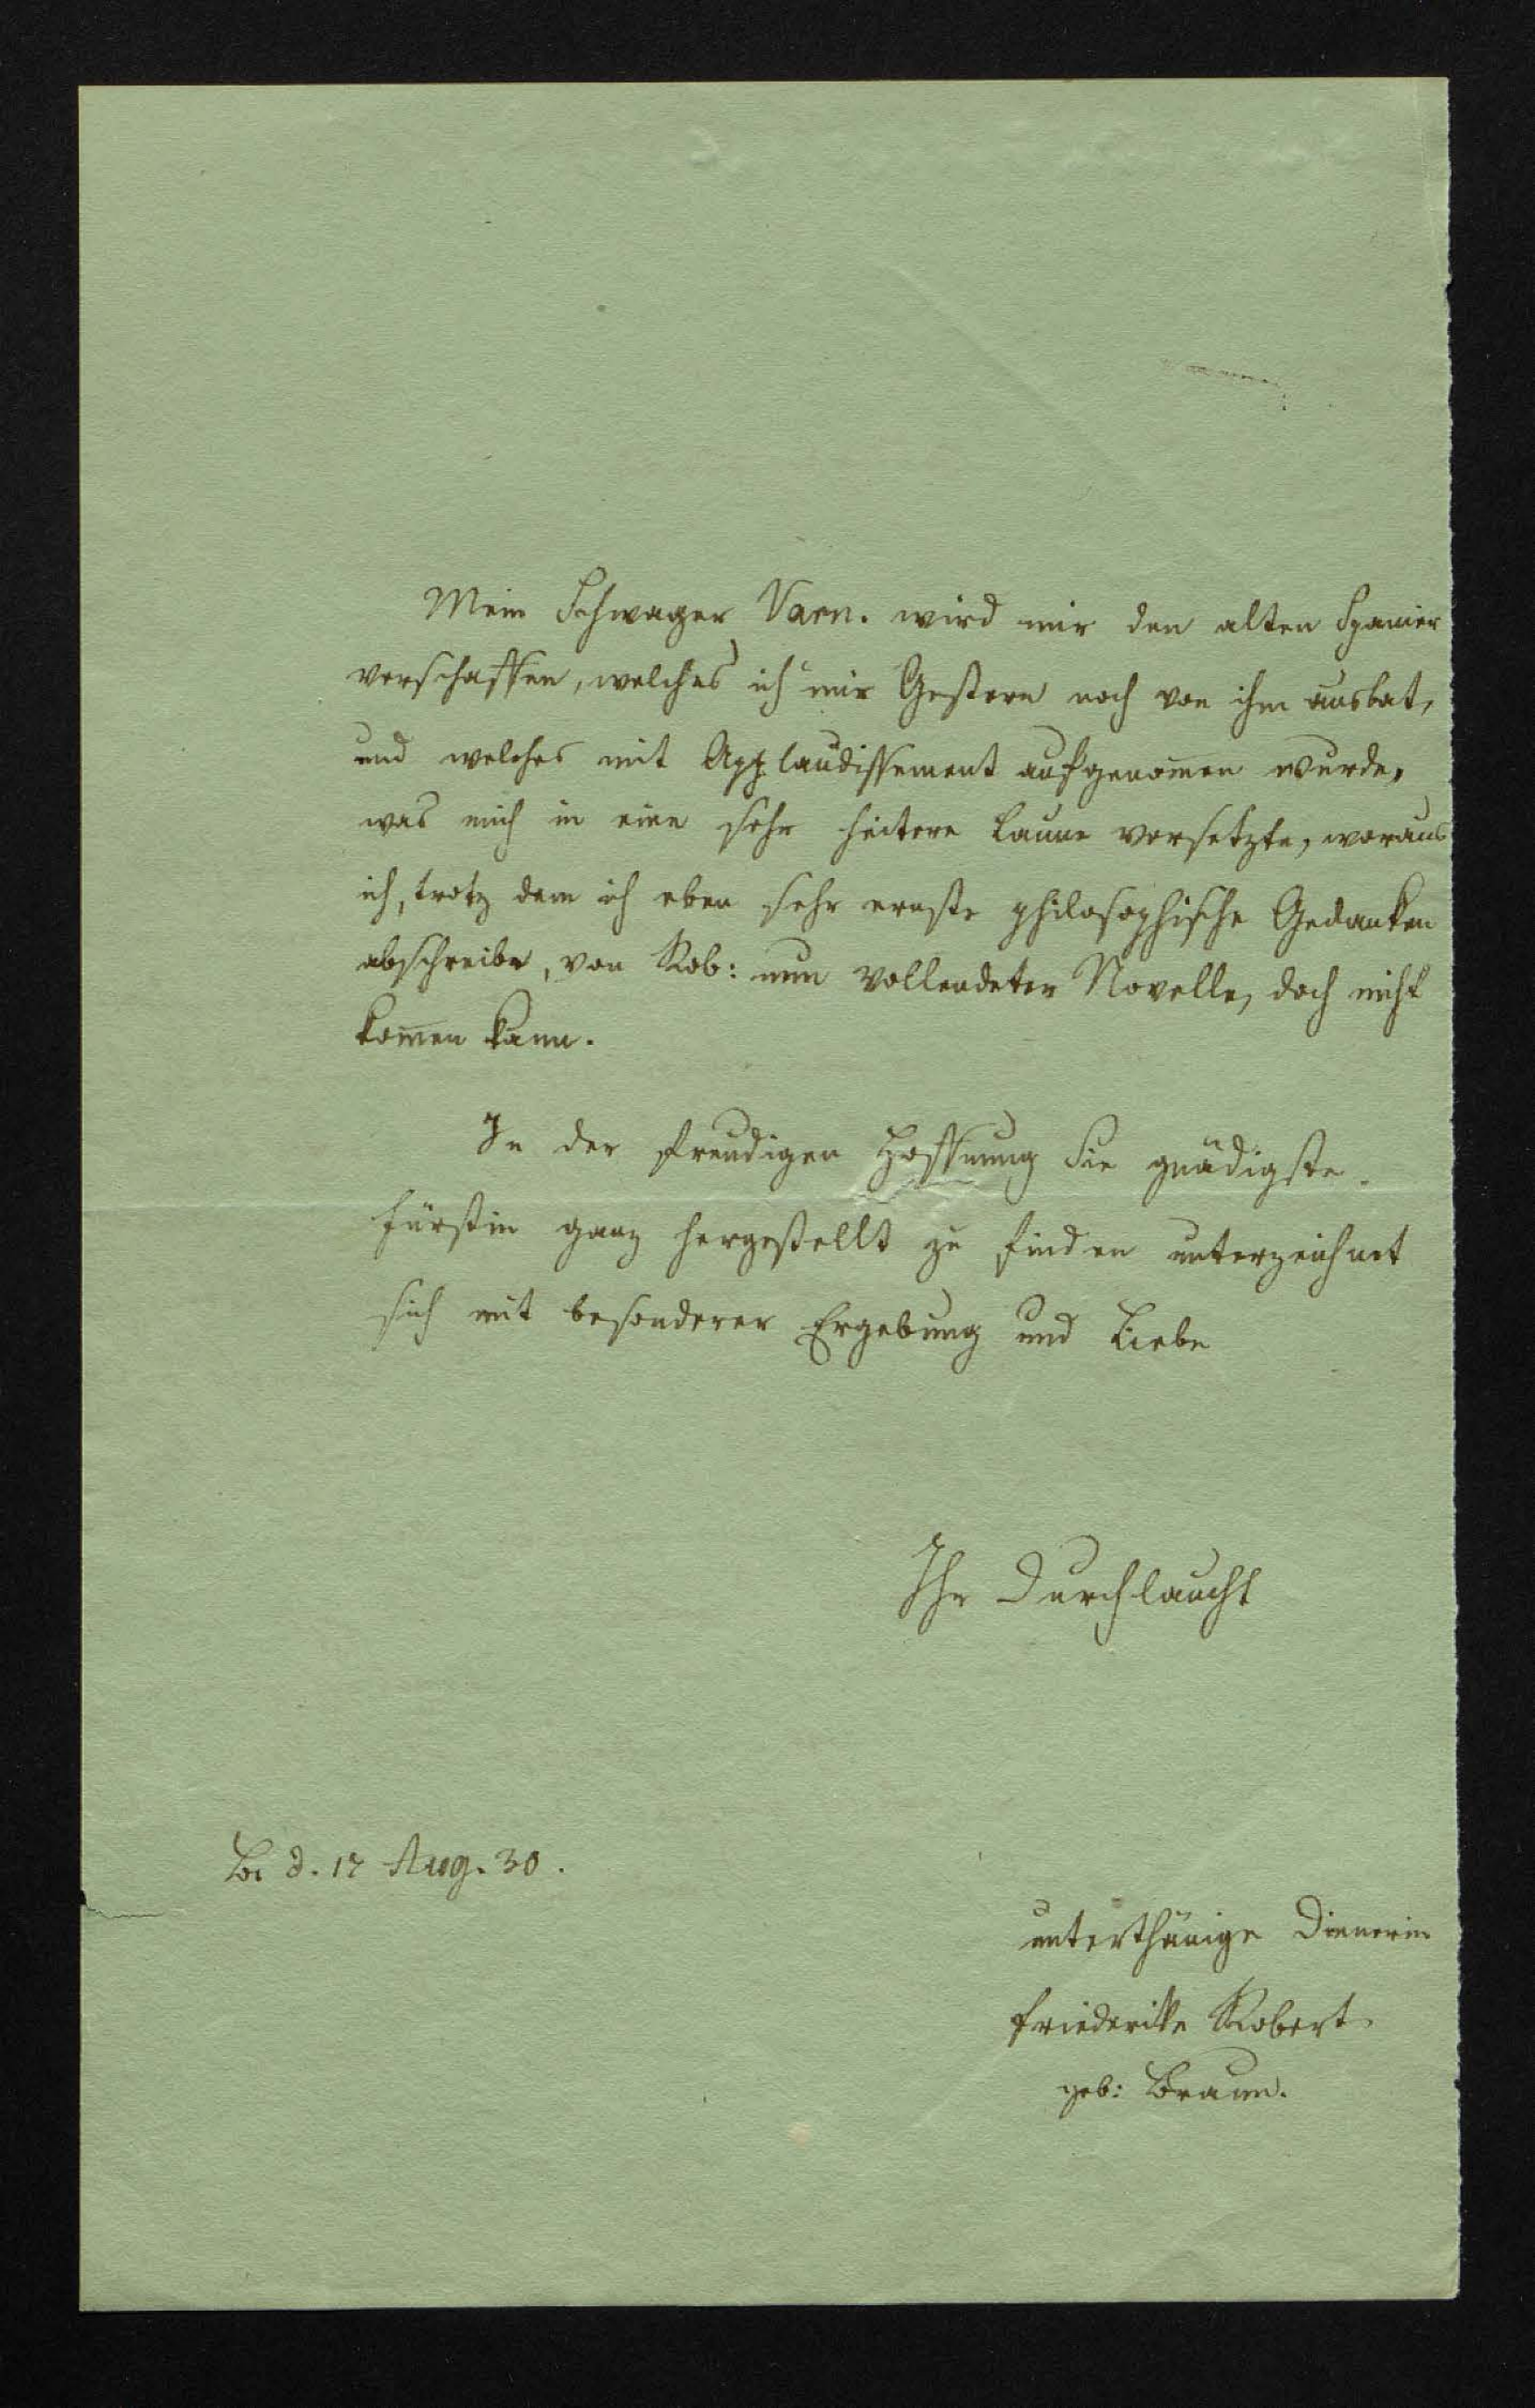 Mein Schwager Varn. wird mir den alten Spanier
verschaffen, welches ich mir Gestern noch von ihm ausbat,
und welches mit Applaudissement aufgenom̅en wurde,
was mich in eine sehr heitere Laune versetzte, woraus
ich, trotz dem ich eben sehr ernste philosophische Gedanken
abschreibe, von Rob: nun vollendeter Novelle, doch nicht
kom̅en kann.
In der freudigen Hoffnung Sie gnädigste
Fürstin ganz hergestellt zu finden unterzeichnet
sich mit besonderer Ergebung und Liebe
Ihr Durchlaucht
d. 17 Aug. 30.
unterthänige Dienerin
Friederikke Robert
geb: Braun.